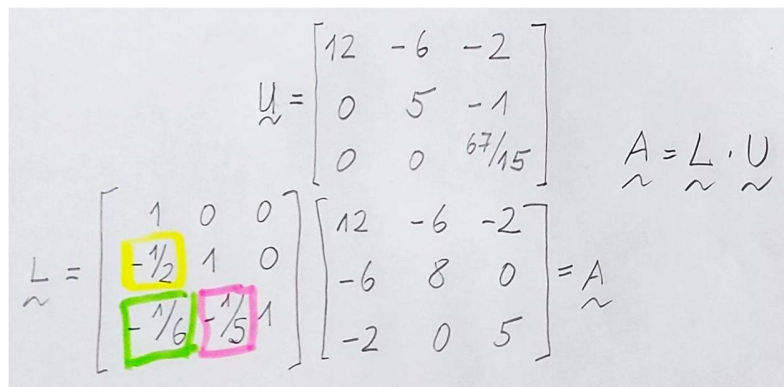 U = [ 12 -6 -2
0 5 -1
0 0 67/15 ]
A = L · U
L = [ 1 0 0
-1/2 1 0
-1/6 -1/5 1 ]
[ 12 -6 -2
-6 8 0
-2 0 5 ] = A